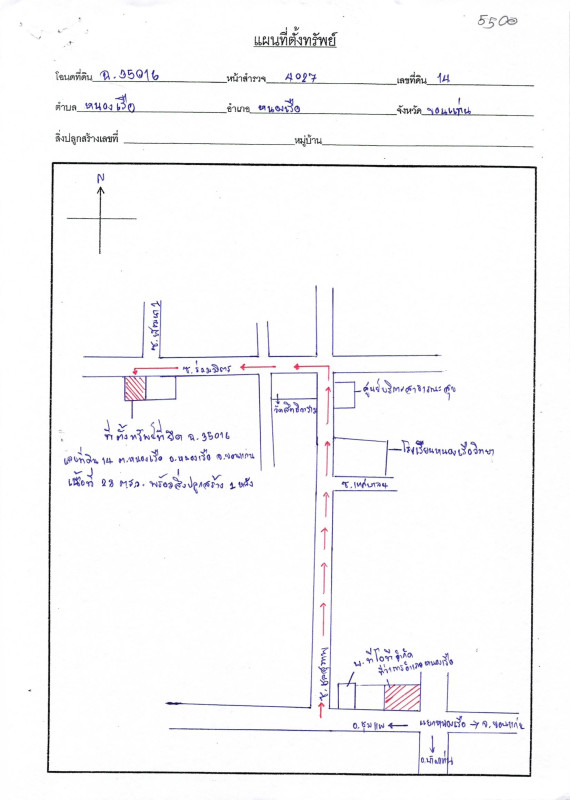 5500
แผนที่ตั้งทรัพย์
โฉนดที่ดิน ฉ.35016 หน้าสำรวจ 4027 เลขที่ดิน 14
ตำบล หนองเรือ อำเภอ หนองเรือ จังหวัด ขอนแก่น
สิ่งปลูกสร้างเลขที่ หมู่บ้าน
N
ซ.พัฒนา
ซ.ร่วมมิตร
ศูนย์บริการสาธารณะสุข
ที่ตั้งทรัพย์ที่ยึด ฉ.35016
เลขที่ดิน 14 ต.หนองเรือ อ.หนองเรือ จ.ขอนแก่น
เนื้อที่ 28 ตรว. พร้อมสิ่งปลูกสร้าง 1 หลัง
โรงเรียนหนองเรือวิทยา
ซ.เทศบาล
บ.ทีโอที จำกัด
ที่ว่าการอำเภอหนองเรือ
อ.ชุมแพ แยกหนองเรือ จ.ขอนแก่น